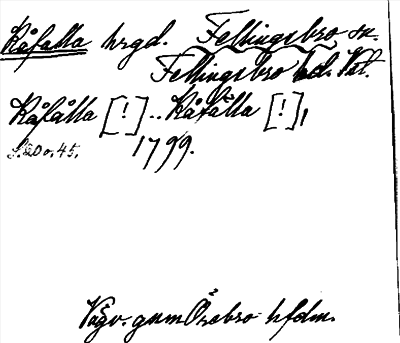 Råfalla hrgd. Fellingsbro sn.
Fellingsbro hd. Vstl.
Råfålla [!] .. Råfälla [!],
1799.
Vägv. gnm Örebro hfdm.